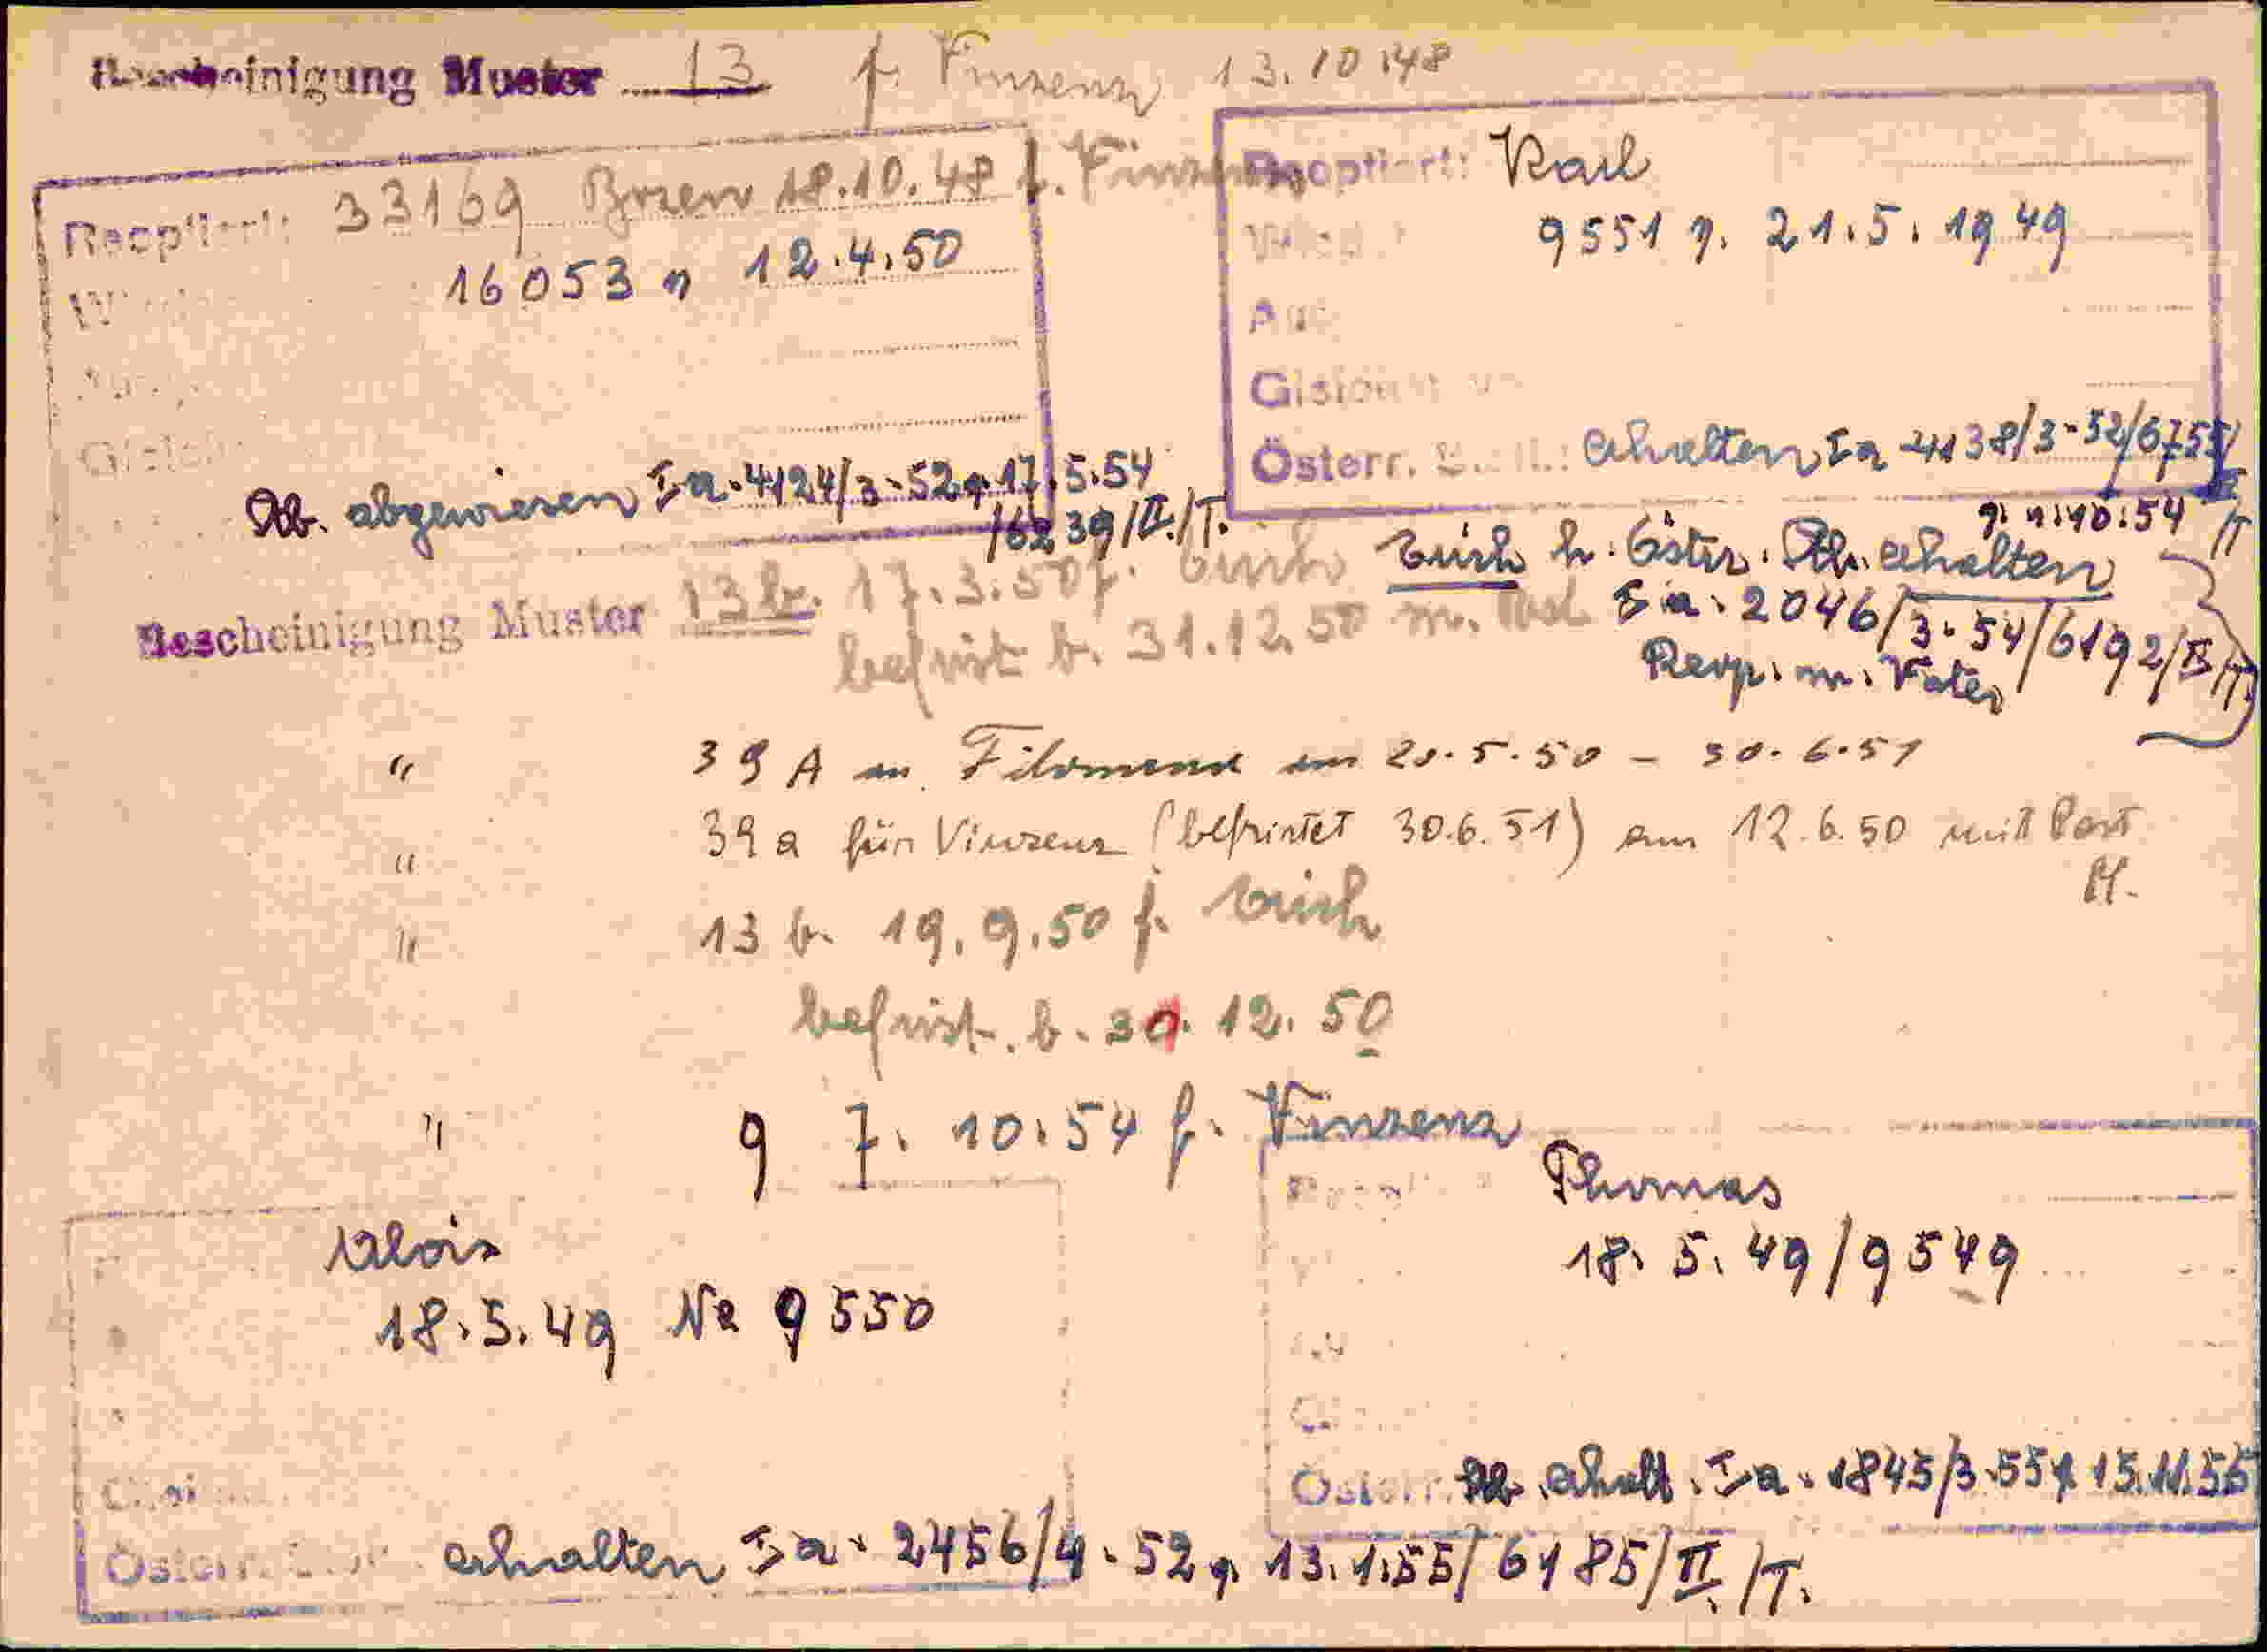 Bescheinigung Muster 13 f. Vinzenz 13.10.48
Reoptiert: 33169 Bozen 18.10.48 f. Vinzenz
16053 v 12.4.50
Stb. abgewiesen Ia-4124/3-52 v. 17.5.54
/6239/II./T.
Reoptiert: Karl
9551 v. 21.5.1949
Österr. erhalten Ia-4138/3-52/6755/II
v. 1.10.54 /T
Erich h. öster. Stb. erhalten
Ia-2046/3-54/6192/II/T.
Reop. m. Vater
Bescheinigung Muster 13b. 17.3.50 f. Erich
befrist b. 31.12.50 m.
" 39 A an Filomena am 20.5.50 - 30.6.51
" 39a für Vinzenz (befristet 30.6.51) am 12.6.50 mit Post
H.
" 13 b. 19.9.50 f. Erich
befrist. b. 30.12.50
" 9 7.10.54 f. Vinzenz
Alois
18.5.49 Nr 9550
Österr. erhalten Ia-2456/4-52 v. 13.1.55/6185/II./T.
Thomas
18.5.49/9549
Österr. Stb. erhalt. Ia-1845/3-55 v. 15.11.55